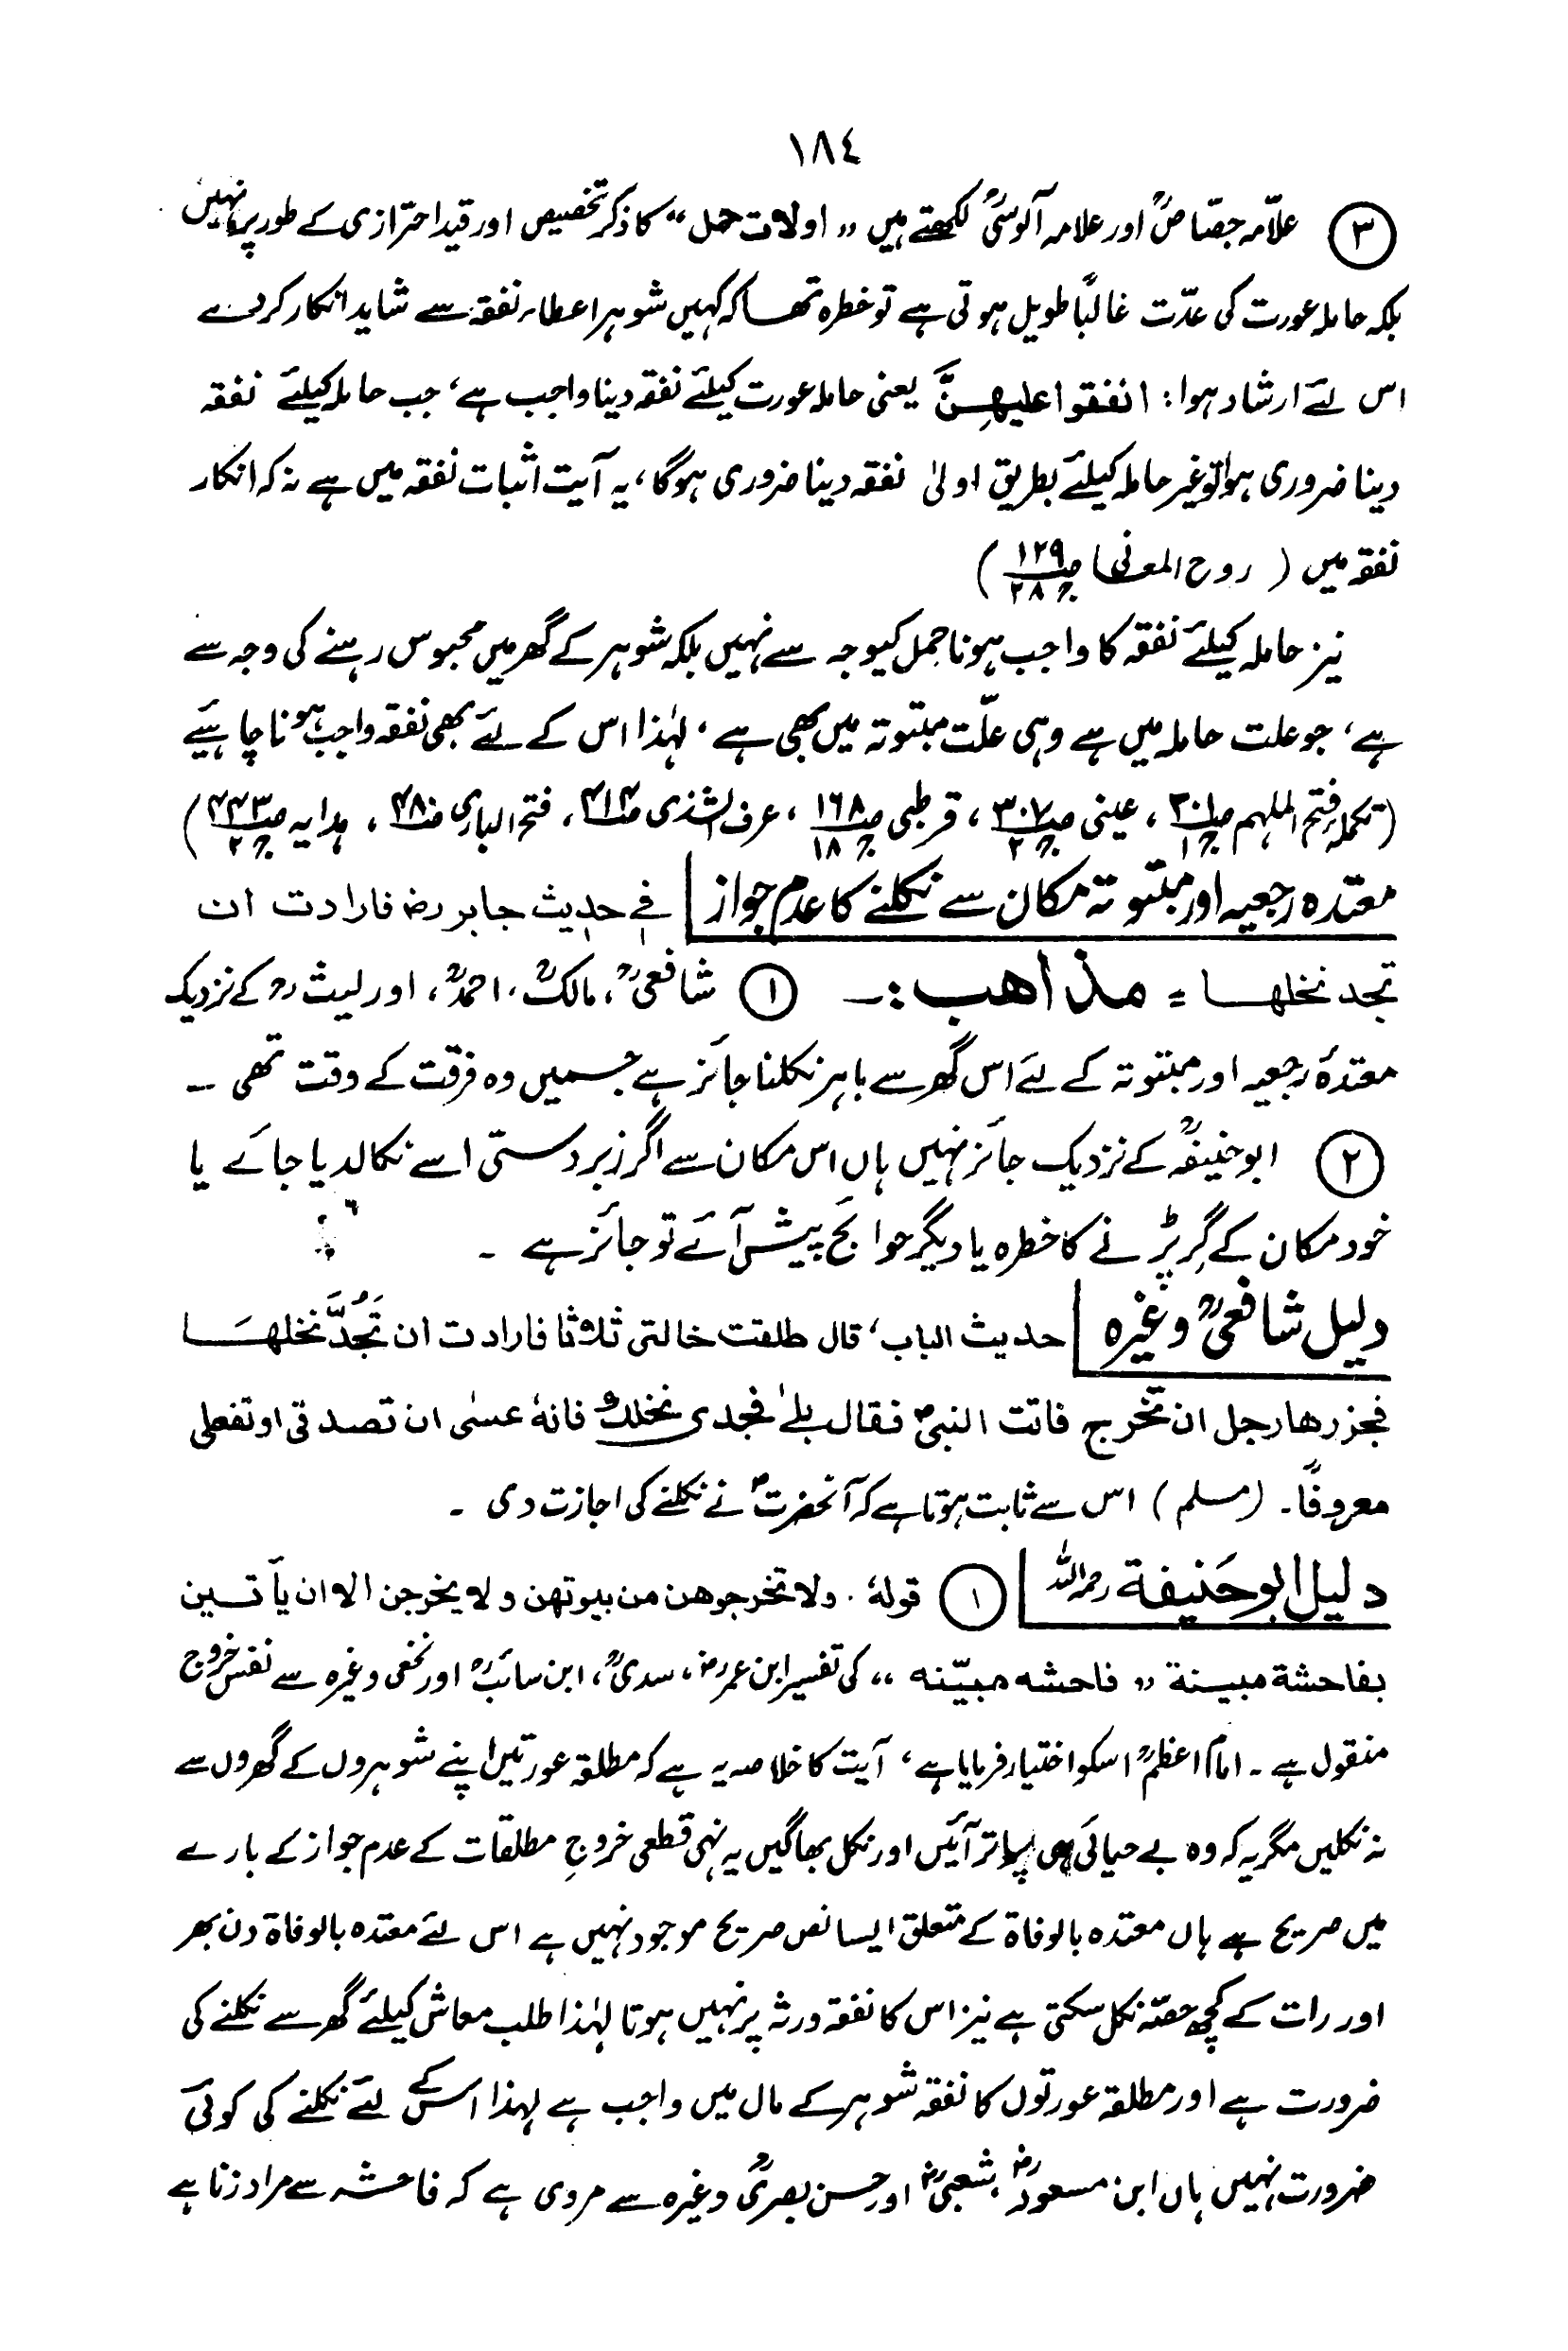 ١٨٤
(٣) علّامہ جصّاصؒ اور علامہ آلوسیؒ لکھتے ہیں ”اولات حمل“ کا ذکر تخصیص اور قید احترازی کے طور پر نہیں
بلکہ حاملہ عورت کی عدّت غالباً طویل ہوتی ہے تو خطرہ تھا کہ کہیں شوہر اعطاء نفقہ سے شاید انکار کردے
اس لئے ارشاد ہوا: انفقوا علیھِنَّ یعنی حاملہ عورت کیلئے نفقہ دینا واجب ہے، جب حاملہ کیلئے نفقہ
دینا ضروری ہوا تو غیر حاملہ کیلئے بطریق اولیٰ نفقہ دینا ضروری ہوگا، یہ آیت اثبات نفقہ میں ہے نہ کہ انکار
نفقہ میں (روح المعانی ص١٢٩ ج٢٨)
نیز حاملہ کیلئے نفقہ کا واجب ہونا حمل کیوجہ سے نہیں بلکہ شوہر کے گھر میں محبوس رہنے کی وجہ سے
ہے، جو علت حاملہ میں ہے وہی علّت مبتوتہ میں بھی ہے، لہٰذا اس کے لئے بھی نفقہ واجب ہونا چاہیئے
(تکملہ فتح الملہم ص٢٠١ ج١، عینی ص٣٠٧ ج٢، قرطبی ص١٦٨ ج١٨، عرف الشذی ص٤١٤، فتح الباری ص٤٨٠، ہدایہ ص٤٤٣ ج٢)
معتدہ رجعیہ اور مبتوتہ مکان سے نکلنے کا عدم جواز فی حدیث جابر رض فارادت ان
تجد نخلھا = مذاھب :ـ (١) شافعیؒ، مالکؒ، احمدؒ، اور لیثؒ کے نزدیک
معتدۂ رجعیہ اور مبتوتہ کے لئے اس گھر سے باہر نکلنا جائز ہے جسمیں وہ فرقت کے وقت تھی ۔
(٢) ابوحنیفہؒ کے نزدیک جائز نہیں ہاں اس مکان سے اگر زبردستی اسے نکالدیا جائے یا
خود مکان کے گِر پڑنے کا خطرہ یا دیگر حوائج پیش آئے تو جائز ہے ۔
دلیل شافعیؒ وغیرہ حدیث الباب، قال طلقت خالتی ثلاثا فارادت ان تَجُدَّ نخلھا
فجزرھا رجل ان تخرج فاتت النبیؐ فقال بلےٰ فجدی نخلک فانہٗ عسٰی ان تصدقی او تفعلی
معروفًا۔ (مسلم) اس سے ثابت ہوتا ہے کہ آنحضرتؐ نے نکلنے کی اجازت دی ۔
دلیل ابوحَنیفة رحمہ اللہ (١) قولہٗ . ولا تخرجوھن من بیوتھن ولا یخرجن الا ان یأتین
بفاحشة مبینة ”فاحشہ مبیّنہ“ کی تفسیر ابن عمرؓ، سدیؒ، ابن سائبؒ اور نخعی وغیرہ سے نفس خروج
منقول ہے ۔ امام اعظمؒ اسکو اختیار فرمایا ہے، آیت کا خلاصہ یہ ہے کہ مطلقہ عورتیں اپنے شوہروں کے گھروں سے
نہ نکلیں مگر یہ کہ وہ بے حیائی ہی پر اتر آئیں اور نکل بھاگیں یہ نہی قطعی خروجِ مطلقات کے عدم جواز کے بارے
میں صریح ہے ہاں معتدہ بالوفاة کے متعلق ایسا نص صریح موجود نہیں ہے اس لئے معتدہ بالوفاة دن بھر
اور رات کے کچھ حصّہ نکل سکتی ہے نیز اس کا نفقہ ورثہ پر نہیں ہوتا لہٰذا طلب معاش کیلئے گھر سے نکلنے کی
ضرورت ہے اور مطلقہ عورتوں کا نفقہ شوہر کے مال میں واجب ہے لہذا اسکے لئے نکلنے کی کوئی
ضرورت نہیں ہاں ابن مسعودؓ، شعبیؒ اور حسن بصریؒ وغیرہ سے مروی ہے کہ فاحشہ سے مراد زنا ہے